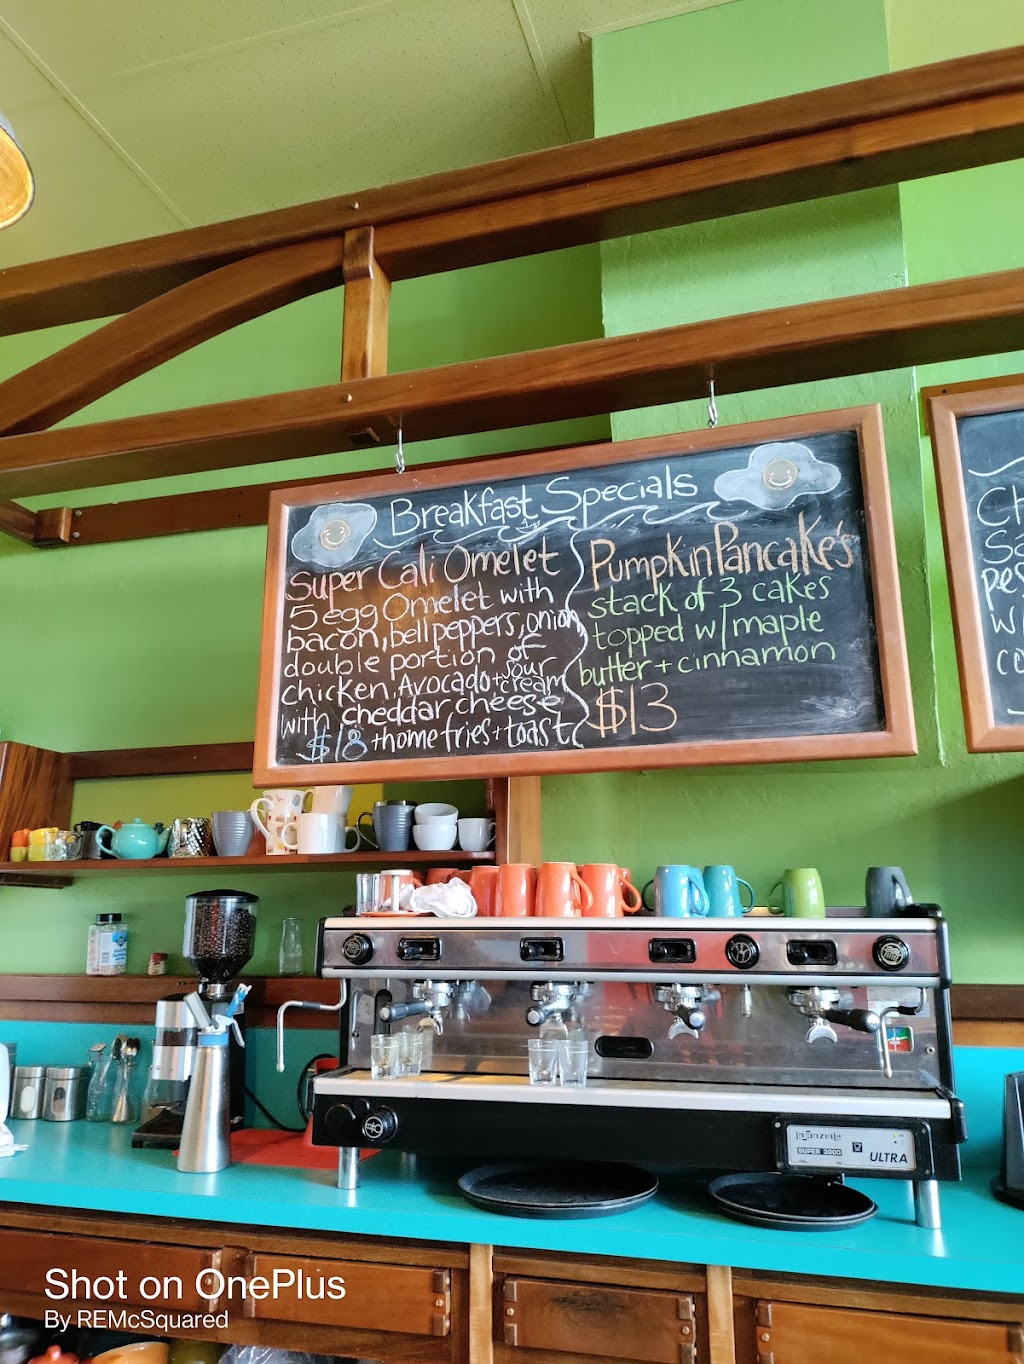 Breakfast Specials
Super Cali Omelet
5 egg Omelet with
bacon, bell peppers, onion
double portion of
chicken, Avocado + sour cream
with cheddar cheese
$18 + home fries + toast
Pumpkin Pancake's
stack of 3 cakes
topped w/ maple
butter + cinnamon
$13
Ch
Sa
pes
w/
SUPER 3000
ULTRA
Shot on OnePlus
By REMcSquared